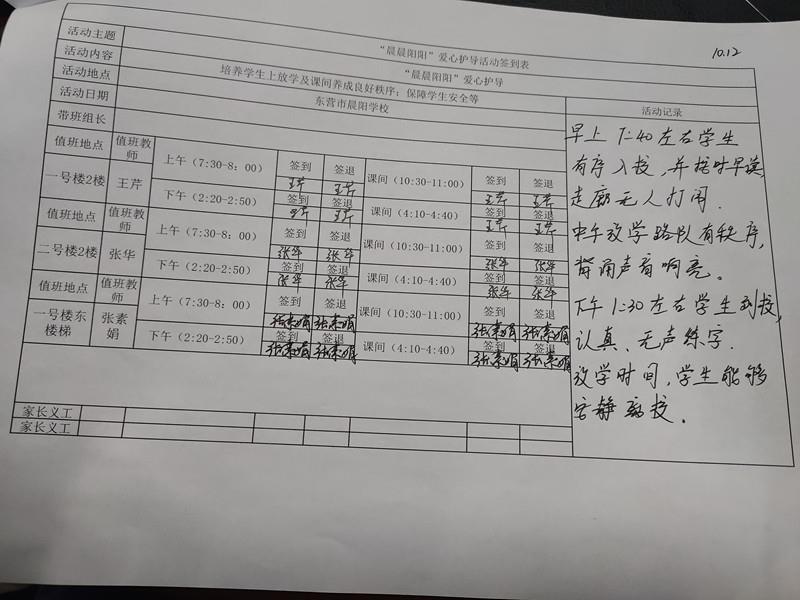 10.12
"晨晨阳阳"爱心护导活动签到表
活动主题 "晨晨阳阳"爱心护导
活动内容 培养学生上放学及课间养成良好秩序；保障学生安全等
活动地点 东营市晨阳学校
活动日期 活动记录
带班组长
值班地点 值班教师 上午（7:30-8：00） 签到 签退 课间（10:30-11:00） 签到 签退
王芹 王芹 王芹 王芹
一号楼2楼 王芹 下午（2:20-2:50） 签到 签退 课间（4:10-4:40） 签到 签退
王芹 王芹 王芹 王芹
值班地点 值班教师 上午（7:30-8：00） 签到 签退 课间（10:30-11:00） 签到 签退
张华 张华 张华 张华
二号楼2楼 张华 下午（2:20-2:50） 签到 签退 课间（4:10-4:40） 签到 签退
张华 张华 张华 张华
值班地点 值班教师 上午（7:30-8：00） 签到 签退 课间（10:30-11:00） 签到 签退
张素娟 张素娟 张素娟 张素娟
一号楼东楼梯 张素娟 下午（2:20-2:50） 签到 签退 课间（4:10-4:40） 签到 签退
张素娟 张素娟 张素娟 张素娟
家长义工
家长义工
早上 7:40左右学生
有序入校，并按时早读
走廊无人打闹．
中午放学路队有秩序，
背诵声音响亮。
下午 1:30左右学生到校，
认真、无声练字．
放学时间，学生能够
安静离校．